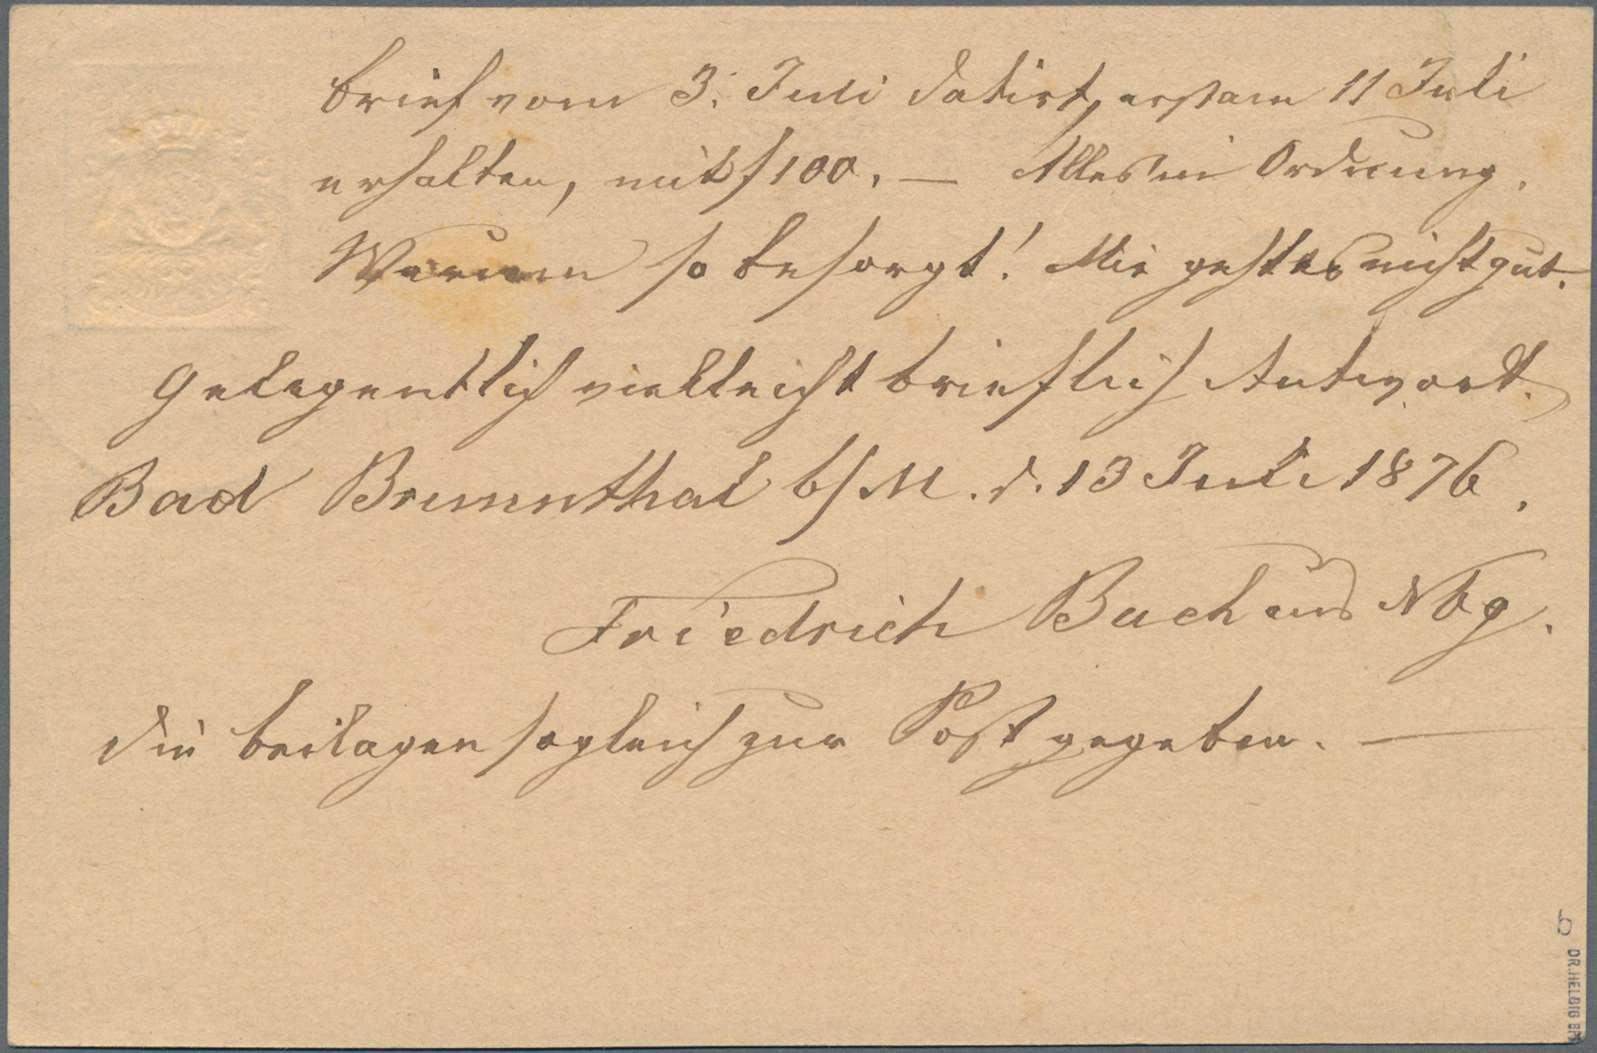 Brief vom 3. Juli datirt, erst am 11 Juli
erhalten, mit f 100. — Alles in Ordnung.
Warum so besorgt! Mir geht es nicht gut.
Gelegentlich vielleicht brieflich Antwort.
Bad Brunnthal b/M. d. 13 Juli 1876.
Friedrich Bach aus Nbg.
Die Beilagen sogleich zur Post gegeben. —
b
DR. HELBIG